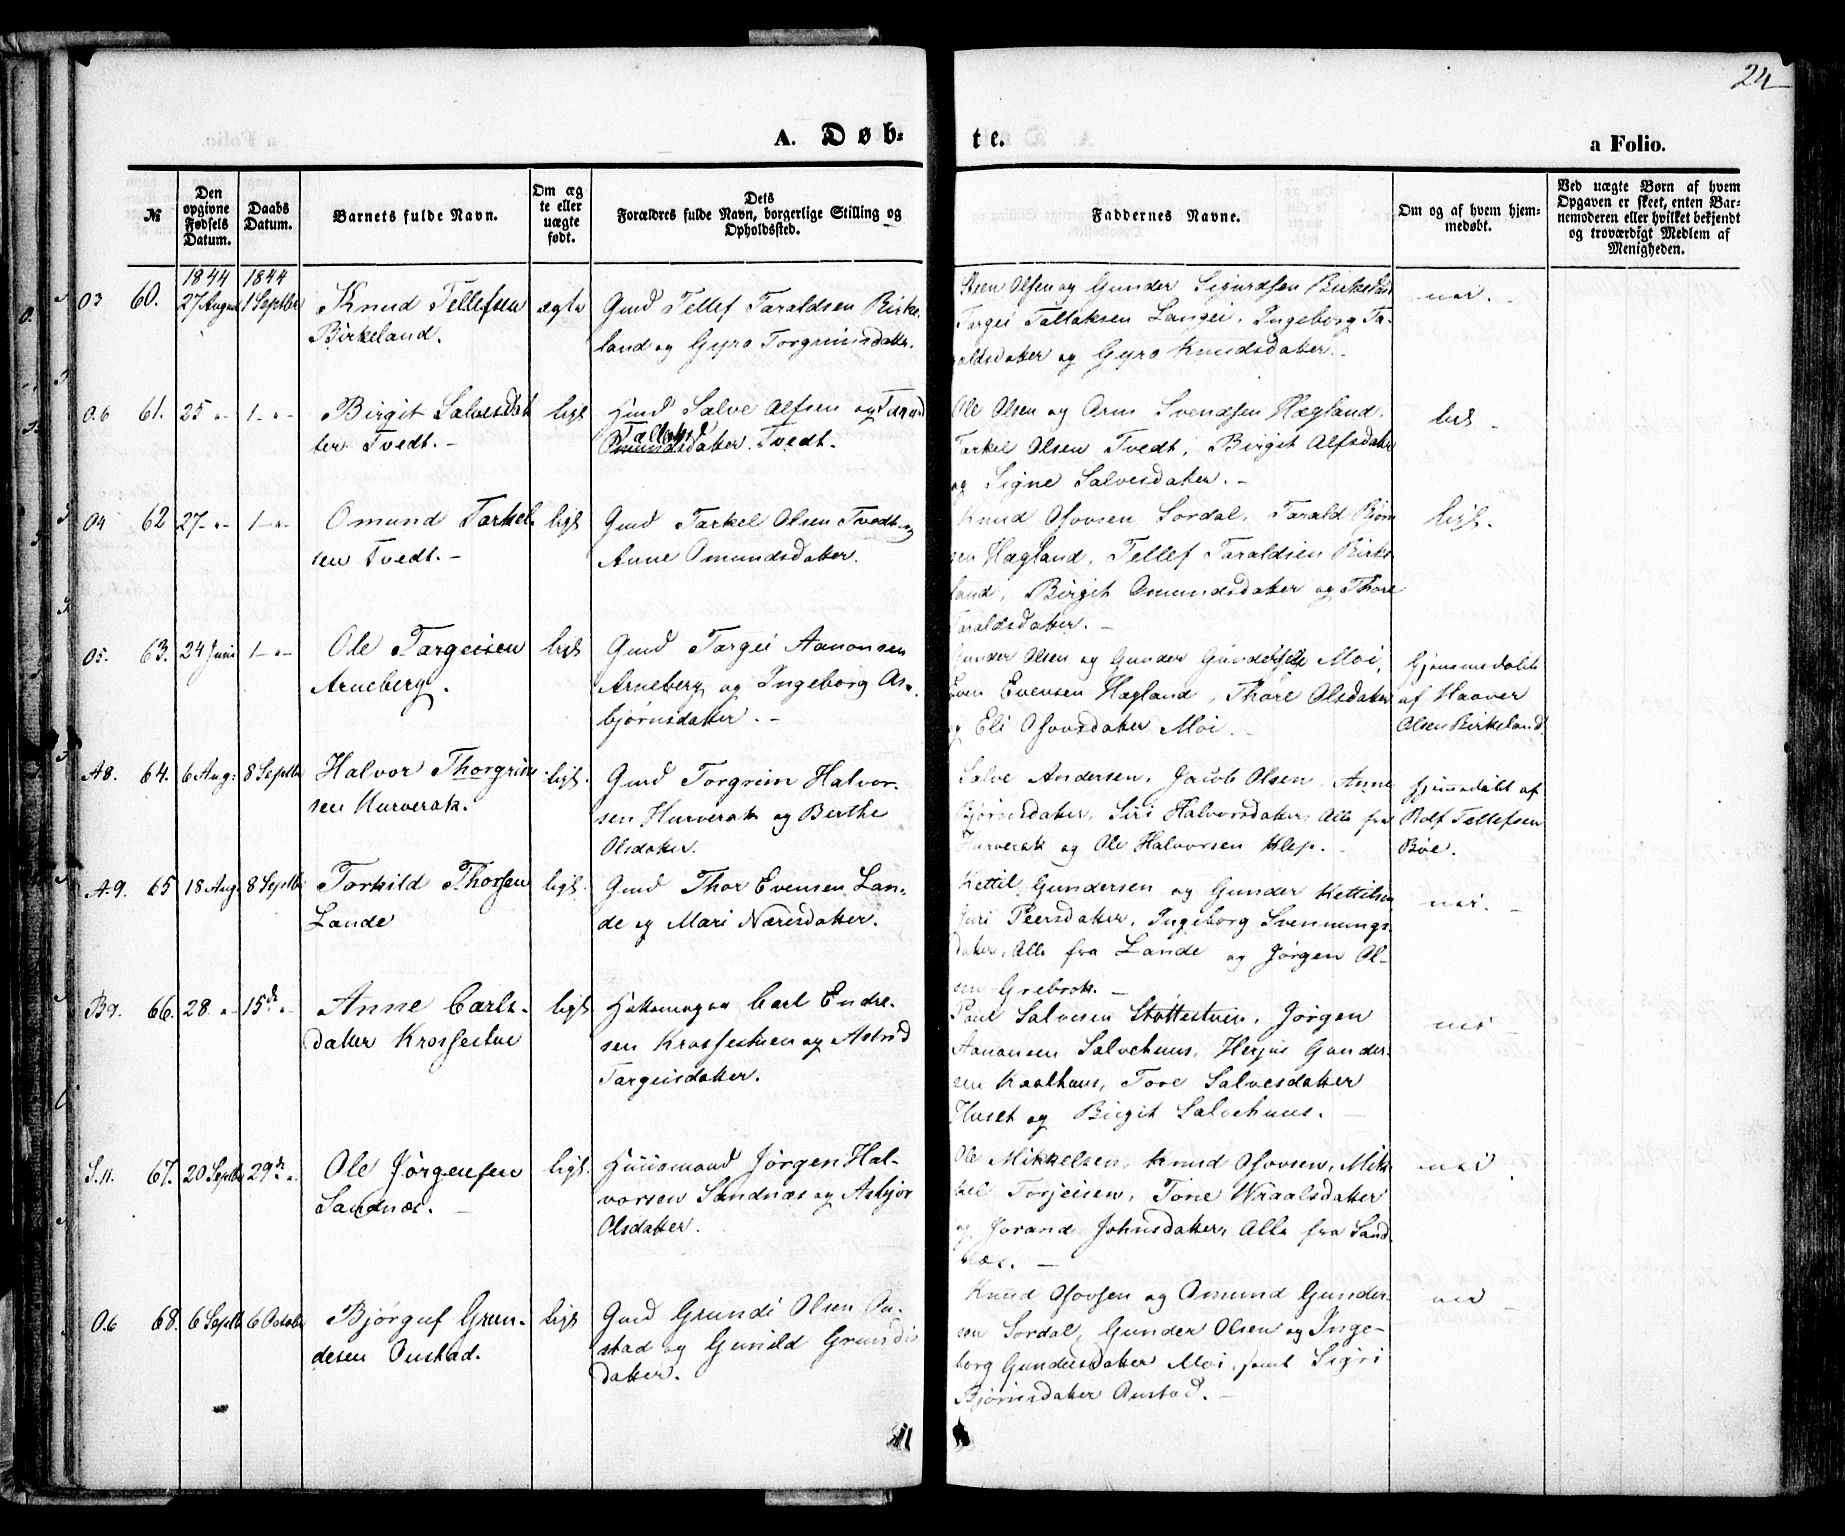 24
A. Døb-
te.
a Folio.
№
Den opgivne Fødsels Datum.
Daabs Datum.
Barnets fulde Navn.
Om ægte eller uægte født.
Dets Forældres fulde Navn, borgerlige Stilling og Opholdssted.
Faddernes Navne.
Om og af hvem hjemmedøbt.
Ved uægte Børn af hvem Opgaven er skeet, enten Barnemoderen eller hvilket bekjendt og troværdigt Medlem af Menigheden.
1844 1844
03 60. 27 August 1 Septbr Knud Tellefsen ægte Gmd Tellef Taraldsen Birke-
Birkeland. land og Gyro Torgrimsdatter.
Steen Olsen og Gunder Sigurdsen Birkeland
Targei Tallaksen Langei, Ingeborg Ta-
raldsdatter og Gyro Knudsdatter.
nei.
06 61. 25 -"- 1 -"- Birgit Salvesdat ligt Gmd Salve Alfsen og
ter Tvedt. - Tallaksd Omundsdatter Tvedt.
Ole Olsen og Arne Svendsen Hægland,
Tarkel Olsen Tvedt, Birgit Alfsdatter
og Signe Salvesdatter. -
04 62 27 -"- 1 -"- Omund Tarkel- ligt Gmd Tarkel Olsen Tvedt og
sen Tvedt. - Anne Omundsdatter.
Knud Osovsen Sordal, Tarald Bjørn
sen Hægland, Tellef Taraldsen Birke
land, Birgit Omundsdatter og Thore
Taraldsdatter. -
ligt.
05. 63. 24 Juni 1 -"- Ole Targeisen ligt Gmd Targei Aanonsen
Arneberg. Arneberg og Ingeborg As-
bjørnsdatter. -
Gunder Olsen og Gunder Gundersen Moi,
Even Evensen Hægland, Thore Olsdatter
og Eli Osovsdatter Moi.
Hjemmedøbt
af Haaver
Olsen Birkeland
A8. 64. 6 Aug: 8 Septbr Halvor Thorgrim ligt. Gmd Torgrim Halvor-
sen Hurverak. sen Hurverak og Berthe
Olsdatter.
Salve Andersen, Jacob Olsen, Anne
Bjørnsdatter, Siri Halvorsdatter, Alle fra
Hurverak og Ole Halvorsen Klep.
hjemmedøbt af
Rolf Tellefsen
Bøe.
A.9. 65 18 Aug 8 Septbr Torkild Thorsen ligt. Gmd Thor Evensen Lan-
Lande de og Mari Nærisdatter.
Kettil Gundersen og Gunder Kettilsen
Juri Peersdatter, Ingeborg Svennungs-
datter, Alle fra Lande og Jørgen Ol-
sen Grebrok. -
nei.
B9. 66. 28 -"- 15de -"- Anne Carls- ligt Carl Endre-
datter Krossestue sen Krossestuen og Astrid
Targeisdatter.
Paul Salvesen Støttestuen, Jørgen
Aanonsen Salvehuus, Herjus Gunder-
sen Kaalhuus, Tore Salvesdatter
Huset og Birgit Salvehuus. -
nei
S.11. 67. 20 Septbr 29de Ole Jørgensen ligt. Huusmand Jørgen Hal-
Sandnæs. - vorsen Sandnæs og Asbjør
Olsdatter.
Ole Mikkelsen, Knud Osovsen, Mik-
kel Torjeisen, Tone Wraalsdatter
og Jorand Johnsdatter, Alle fra Sand-
næs. -
nei
06 68. 6 Septbr 6 October Bjørguf Grun- ligt Gmd Grundi Olsen On-
desen Onstad. stad og Gunild Grundi
datter.
Knud Osovsen og Omund Gunder-
sen Sordal, Gunder Olsen og Inge-
borg Gundersdatter Moi, samt Sigri
Bjørnsdatter Onstad. -
nei